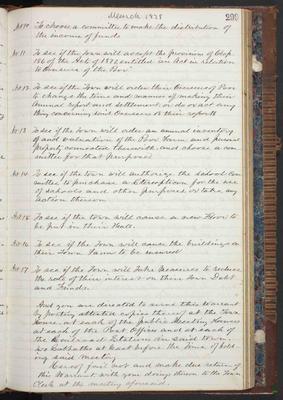 March 1878
299
No 10 To choose a committee to make the distribution of
the income of funds
No 11 To see if the town will accept the provision of Chap.
186 of the Act of 1872 entitled an Act in relation
to Overseers of the Poor
No 12 To see if the Town will order their Overseers of Poor
to change the time and manner of making their
Annual report and settlement or do or act any
thing concerning said Overseers & their reports
No 13 To see if the town will order an annual inventory
of and valuation of the Poor Farm and personal
property connected therewith and choose a com
mittee for that purpose
No 14 To see if the town will authorize the school com
mittee to purchase a Stereopticon for the use
of schools and other purposes or take any
action thereon
No 15 To see if the town will cause a new Floor to
be put in their Hall.
No 16 To see if the Town will cause the buildings on
their Town Farm to be insured
No 17 To see if the Town will take Measures to reduce
the rate of their interest on their Town Debt
and Funds.
And you are directed to serve this Warrant
by posting attested copies thereof at the Town
House, at each of the public Meeting Houses
at each of the Post Offices and at each of
the Railroad Stations in said town
two Sabbaths at least before the time of hold
ing said meeting
Hereof fail not and make due return of
this Warrant with your doings thereon to the Town
Clerk at the meeting aforesaid